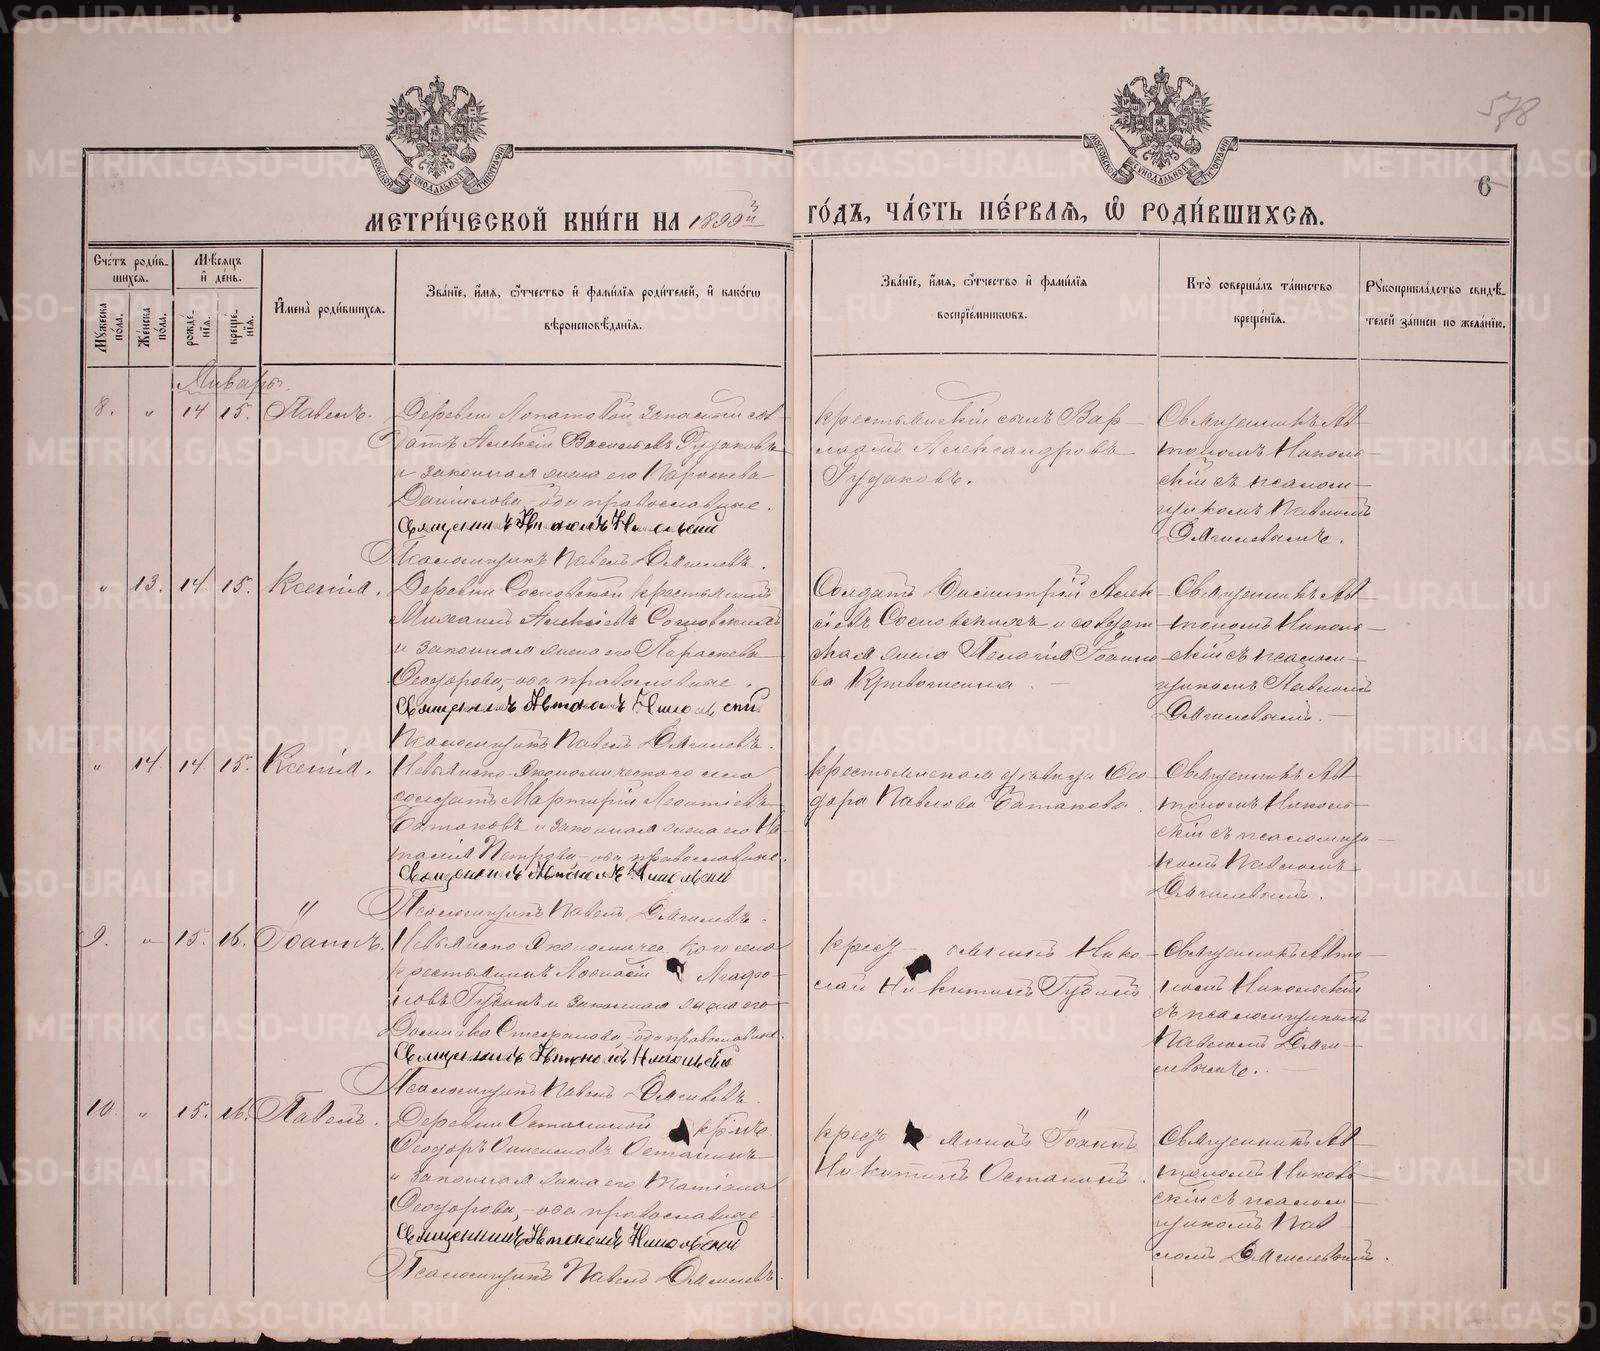 578
6
МЕТРИ́ЧЕСКОЙ КНИ́ГИ НА 1899й ГО́ДЪ, ЧА́СТЬ ПЕ́РВАѦ, Ѽ РОДИ́ВШИХСѦ.
Сче́тъ роди́в-
шихсѧ.
Мѹ́жеска по́ла.
Же́нска по́ла.
Мѣ́сѧцъ и҆ де́нь.
рожде́-
нїѧ.
креще́-
нїѧ.
И҆мена̀ роди́вшихсѧ.
Зва́нїе, и҆́мѧ, ѻ҆́тчество и҆ фамі́лїѧ роди́телей, и҆ како́гѡ
вѣроисповѣ́данїѧ.
Зва́нїе, и҆́мѧ, ѻ҆́тчество и҆ фамі́лїѧ
воспрїе́мниковъ.
Кто̀ соверша́лъ та́инство
креще́нїѧ.
Рѹкоприкла́дство свидѣ́-
телей за́писи по жела́нїю.
Январь.
8. " 14 15. Павелъ.
Деревни Лопатовой запасный сол-
датъ Алексій Васильевъ Гудаковъ
и законная жена его Параскева
Даніилова, оба православные.
Священникъ Автономъ Никольскій
Псаломщикъ Павелъ Дягилевъ.
крестьянскій сынъ Вар-
лаамъ Александровъ
Гудаковъ.
Священникъ Ав-
тономъ Николь-
скій съ псалом-
щикомъ Павломъ
Дягилевымъ.
" 13. 14. 15. Ксенія.
Деревни Сосновской крестьянинъ
Михаилъ Алексіевъ Сосновскихъ
и законная жена его Параскева
Ѳеодорова, оба православные.
Священникъ Автономъ Никольскій
Псаломщикъ Павелъ Дягилевъ.
Солдатъ Димитрій Алек
сіевъ Сосновскихъ и солдат
ская жена Пелагія Іоанно
ва Кривошеина.
Священникъ Ав-
тономъ Николь-
скій съ псалом-
щикомъ Павломъ
Дягилевымъ.
" 14. 14. 15. Ксенія.
Невьянско-Экономическаго села
солдатъ Мартирій Леонтіевъ
Батаковъ и законная жена его На-
талія Петрова, оба православные.
Священникъ Автономъ Никольскій
Псаломщикъ Павелъ Дягилевъ.
крестьянская дѣвица Ѳео
дора Павлова Батакова
Священникъ Ав
тономъ Николь-
скій съ псаломщи-
комъ Павломъ
Дягилевымъ.
9. " 15. 16. Іоаннъ.
Невьянско-Экономическаго села
крестьянинъ Агафо-
новъ Губинъ и законная жена его
Стефанова, оба православные.
Священникъ Автономъ Никольскій
Псаломщикъ Павелъ Дягилевъ.
Нико-
лай Никитинъ Губинъ
Священникъ Авто-
номъ Никольскій
съ псаломщикомъ
Павломъ Дяги-
левымъ.
10. " 15. 16. Павелъ.
Деревни Останиной кр-нъ
Ѳеодоръ Останинъ
и законная жена его Татіана
Ѳеодорова, оба православные
Священникъ Автономъ Никольскій
Псаломщикъ Павелъ Дягилевъ.
Іоаннъ
Никитинъ Останинъ.
Священникъ Ав-
тономъ Николь-
скій съ псалом-
щикомъ Пав-
ломъ Дягилевымъ.
METRIKI.GASO-URAL.RU